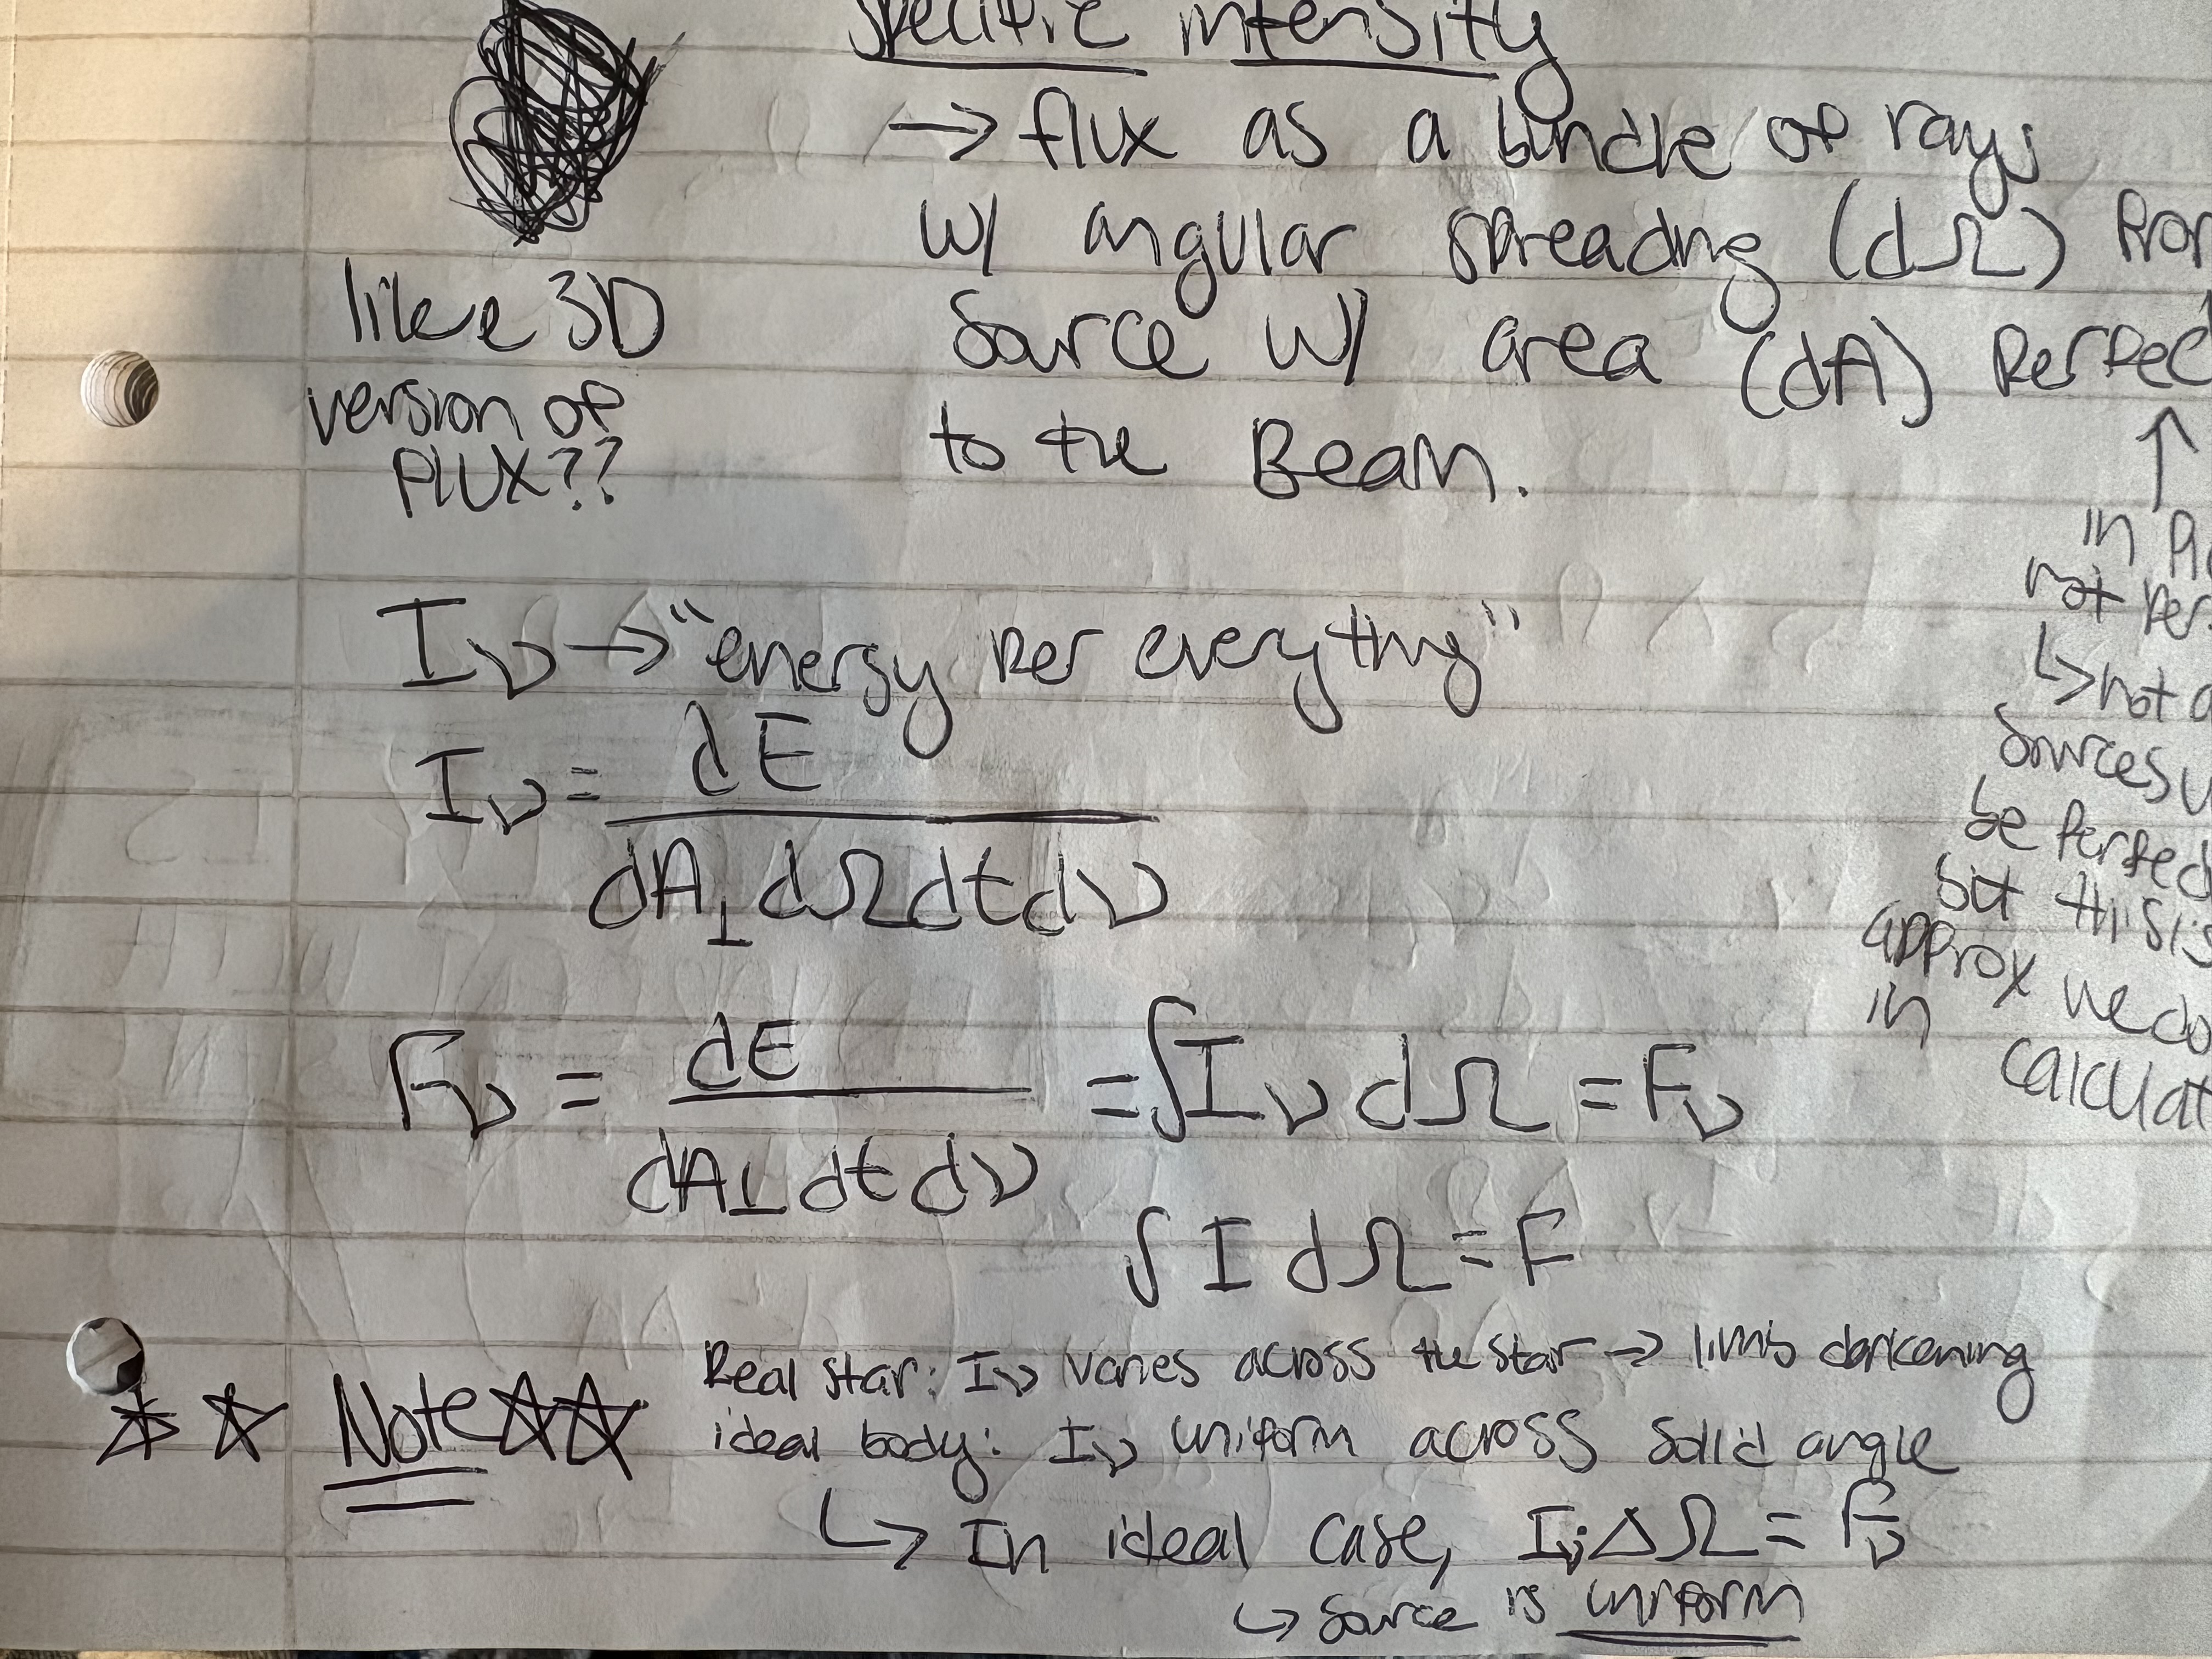 specific intensity
→ flux as a bundle of rays
w/ angular spreading (dΩ)
source w/ area (dA)
to the Beam.
like 3D
version of
flux??
in
not
↳ not
sources
be
but this is
approx we do
in
Iν → "energy per everything"
Iν = dE / dA⊥ dΩ dt dν
Fν = dE / dA⊥ dt dν = ∫ Iν dΩ = Fν
∫ I dΩ = F
☆ ☆ Note ☆☆
Real star: Iν varies across the star → limb darkening
ideal body: Iν uniform across solid angle
↳ In ideal case, Iν ΔΩ = Fν
↳ source is uniform